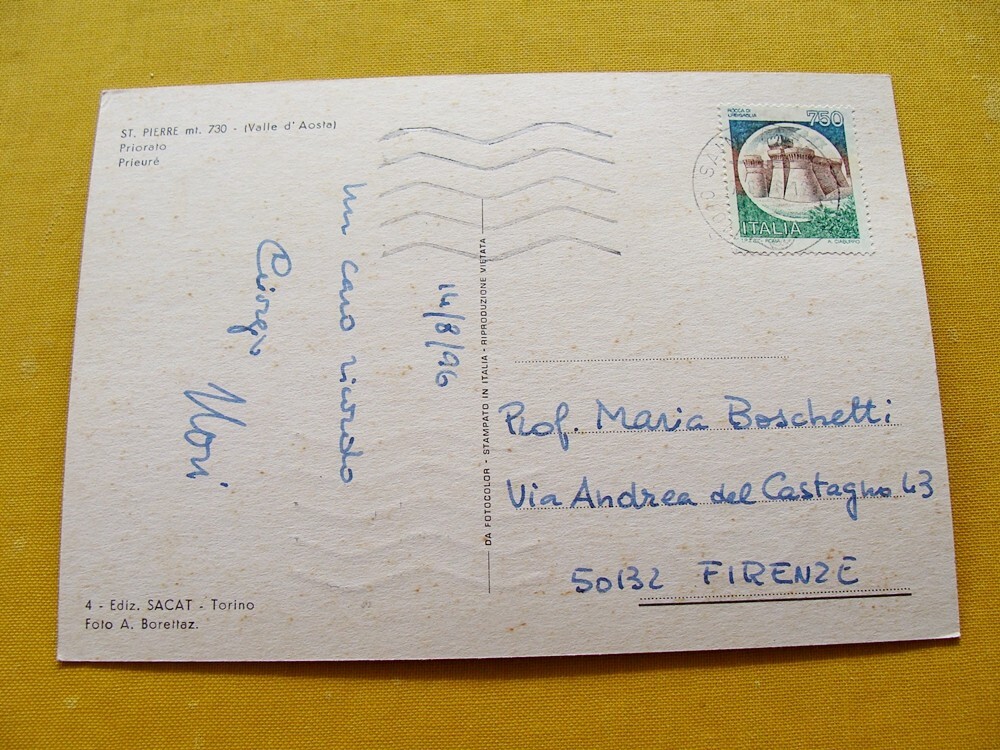 ST. PIERRE mt. 730 - (Valle d'Aosta)
Priorato
Prieuré
14/8/96
un caro ricordo
Giorgio
Mori
4 - Ediz. SACAT - Torino
Foto A. Borettaz.
DA FOTOCOLOR - STAMPATO IN ITALIA - RIPRODUZIONE VIETATA
ROCCA DI
URBISAGLIA
750
ITALIA
Prof. Maria Boschetti
Via Andrea del Castagno 43
50132 FIRENZE